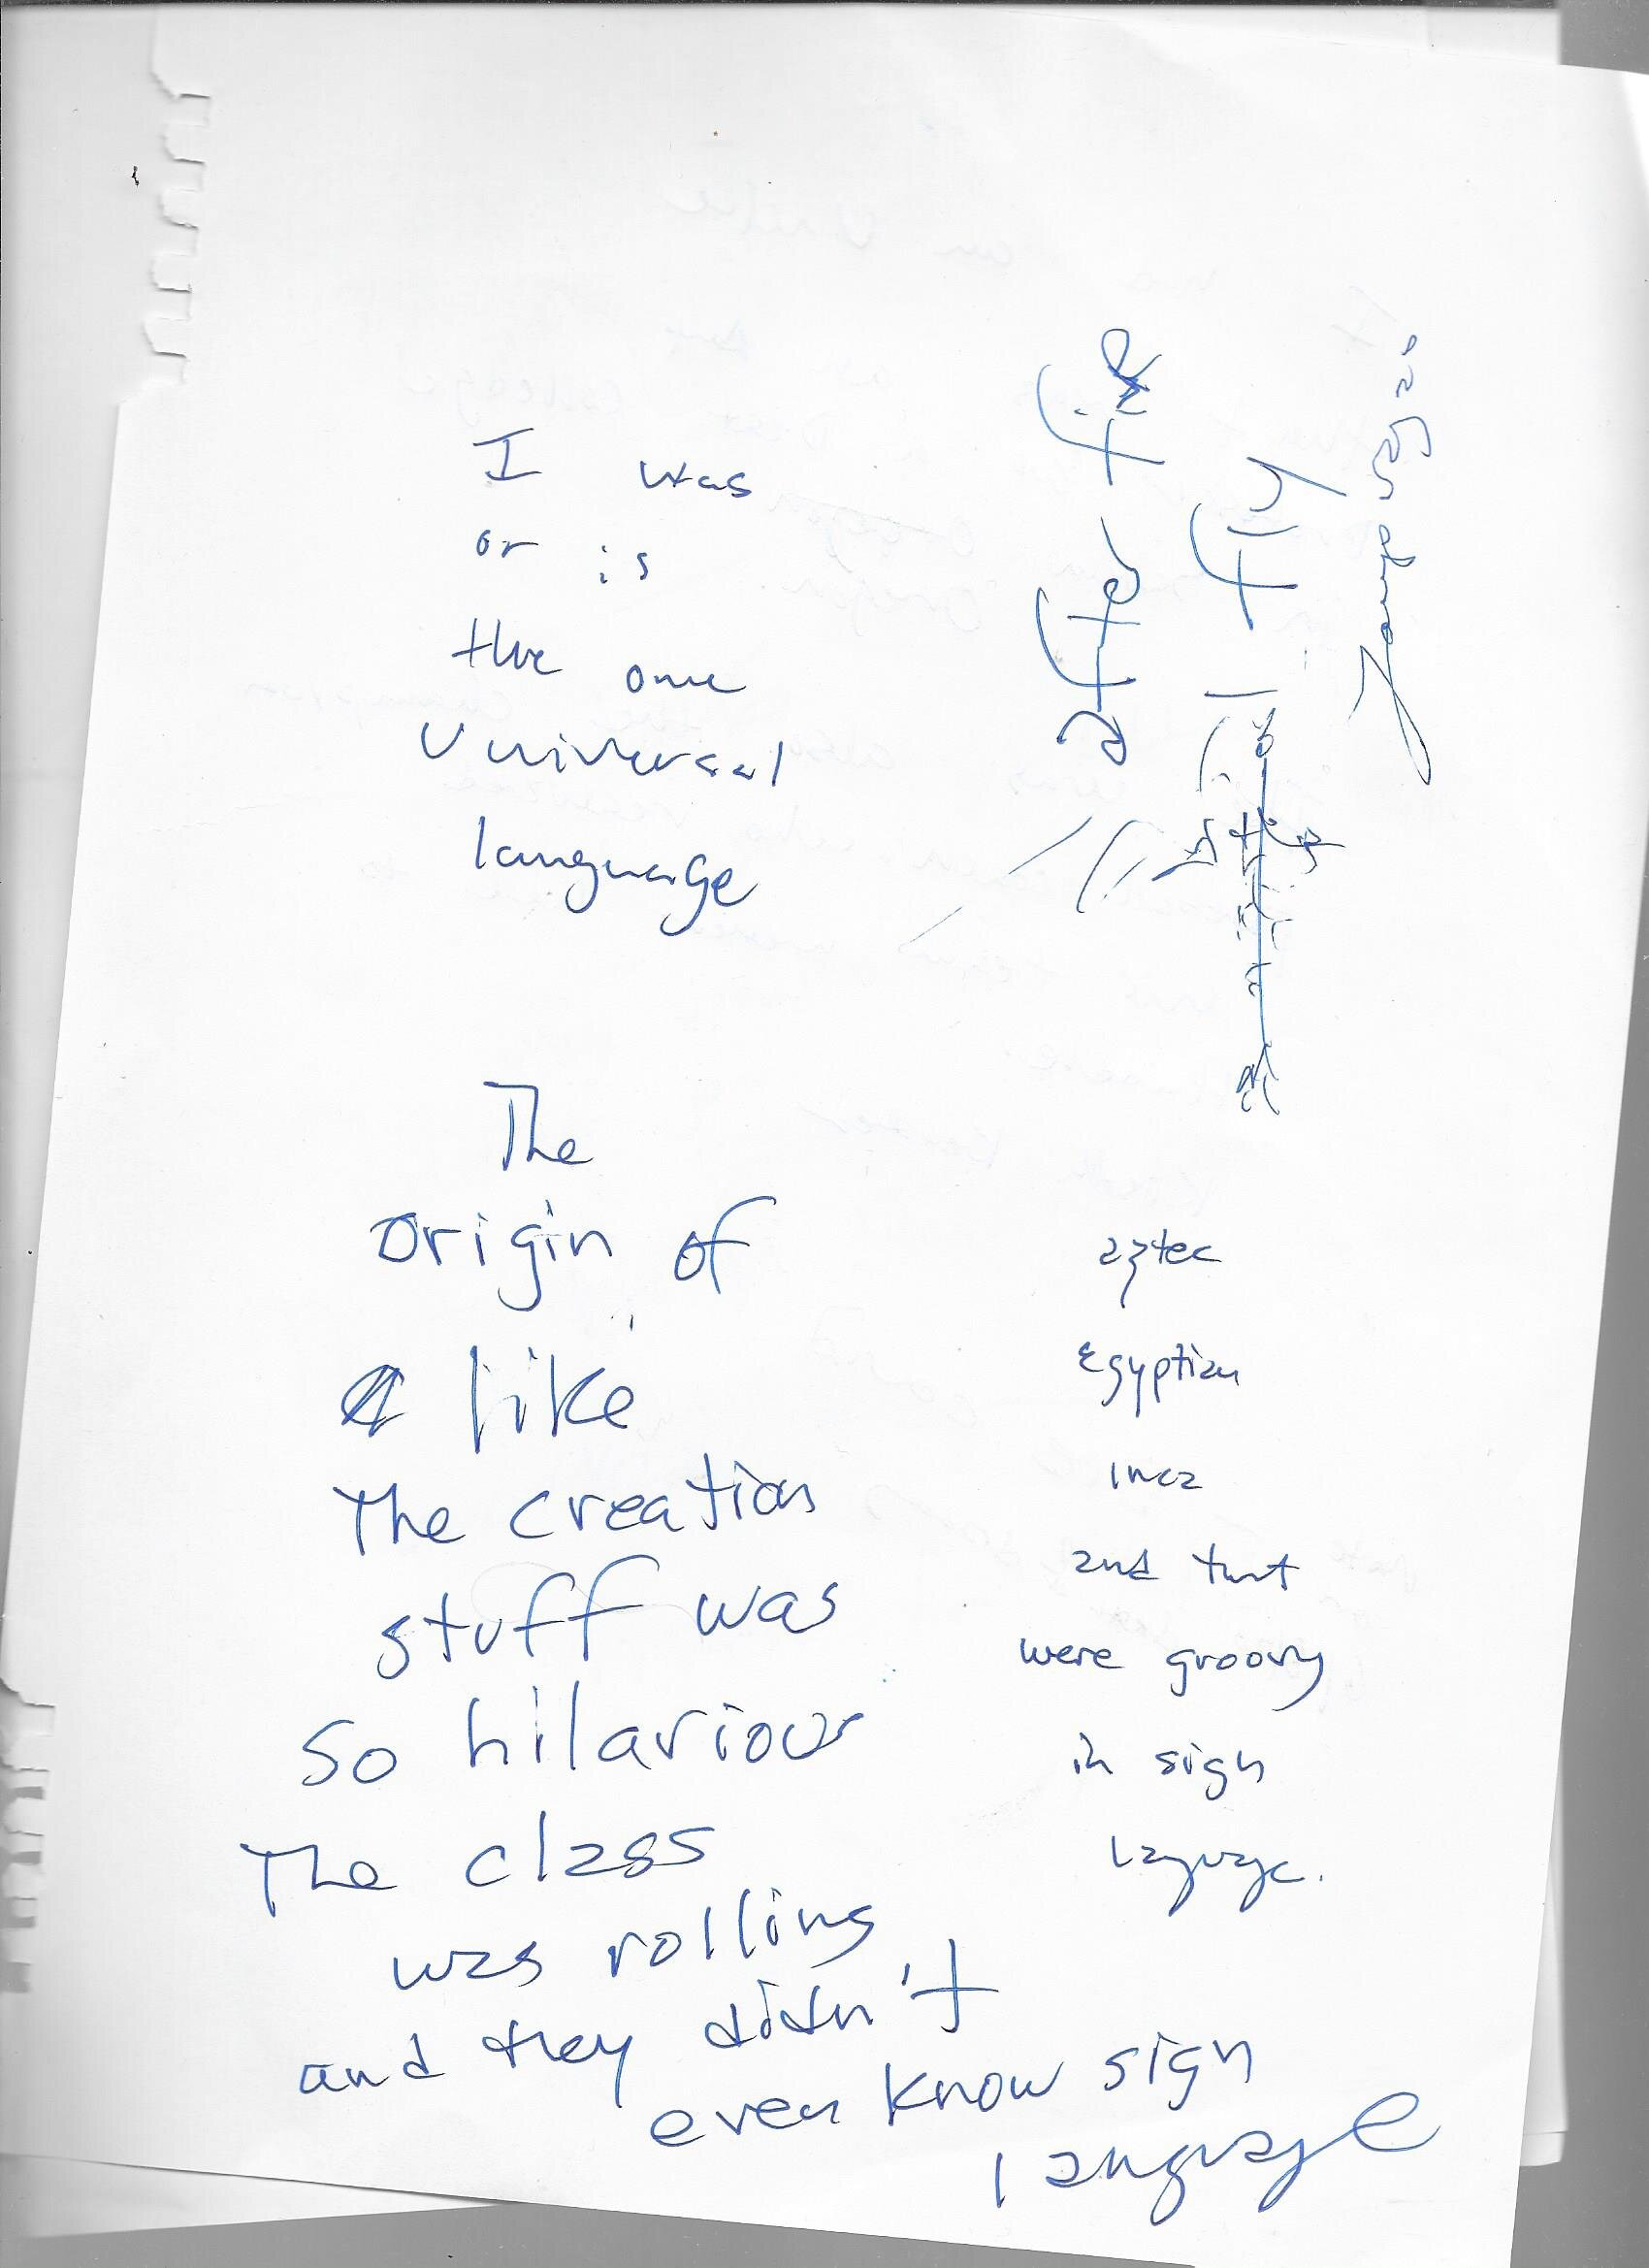 I was
or is
the one
Universal
language
The
origin of
like
The creation
stuff was
so hilarious
The class
was rolling
and they didn't
even know sign
language
after fix
I fly
Language 20
aztec
Egyptian
inca
and that
were groovy
in sign
laguage.